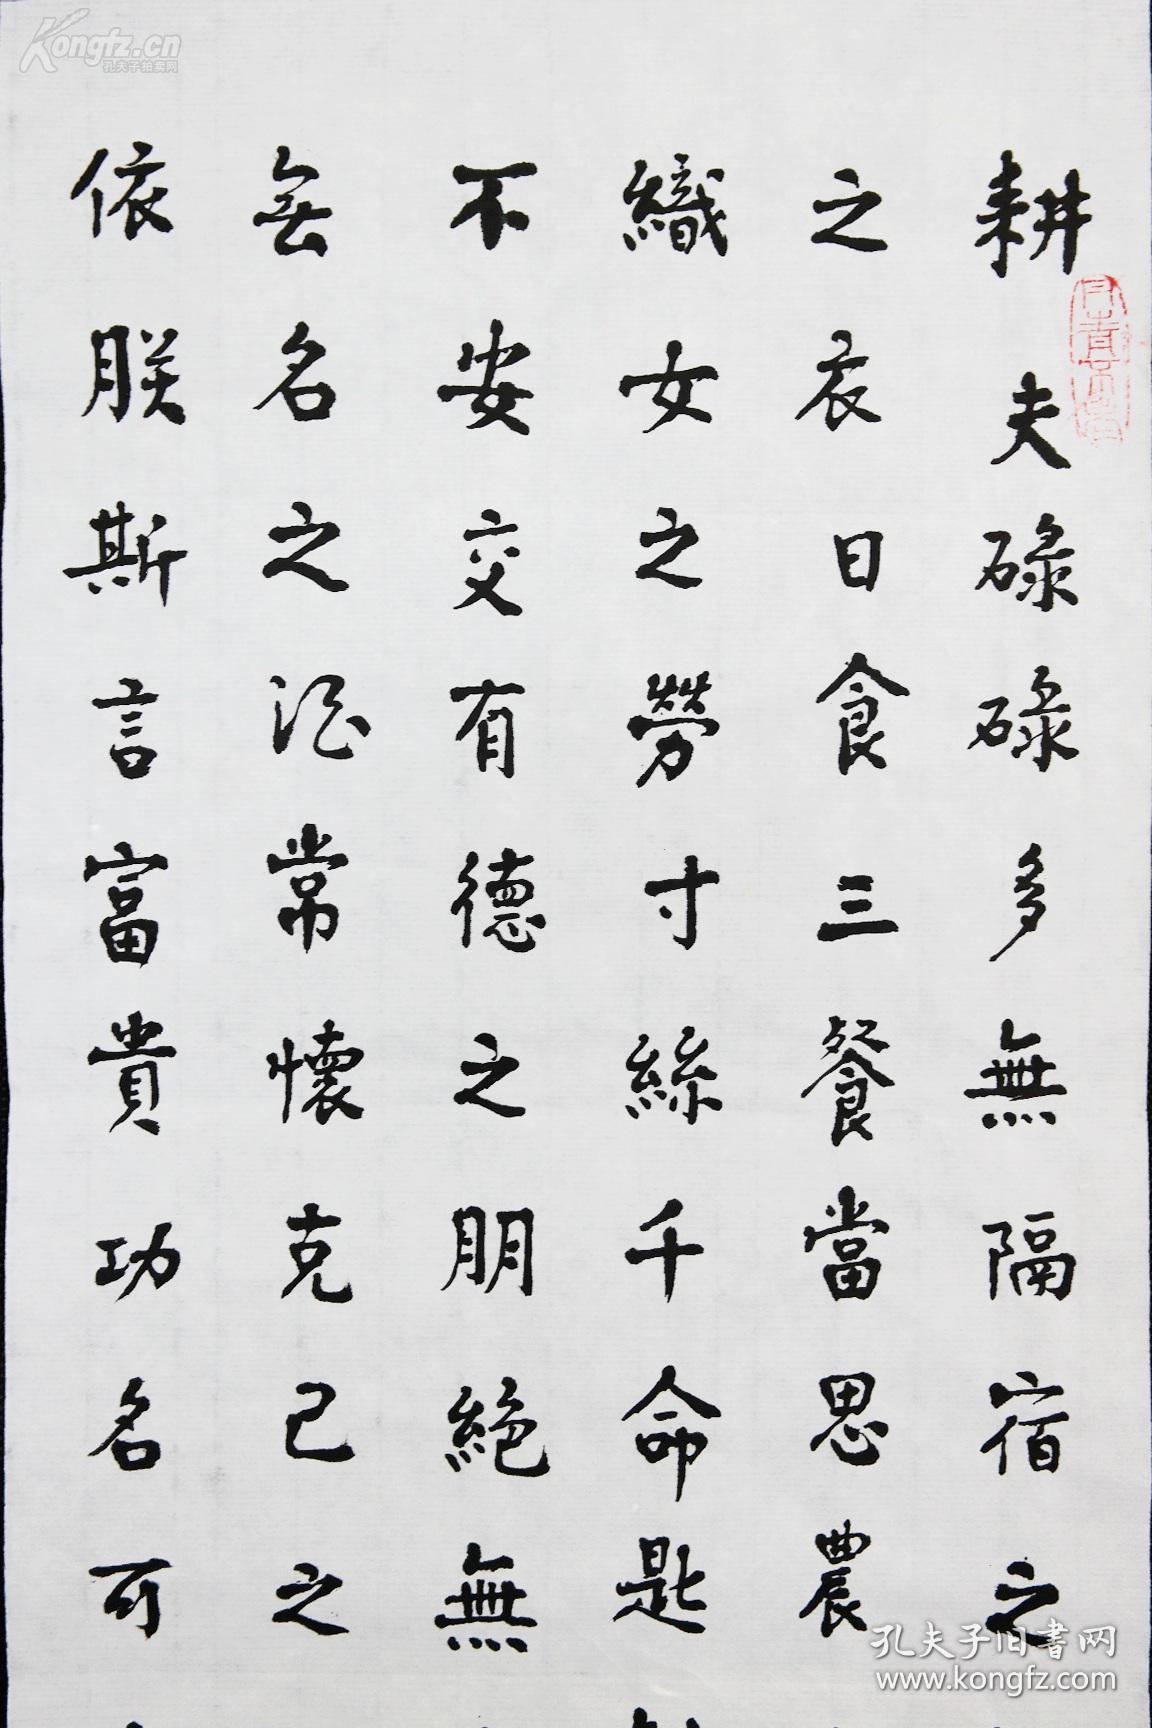 耕夫碌碌多無隔宿之
之衣日食三餐當思農
織女之勞寸絲千命匙
不安交有德之朋絕無
無名之酒常懷克己之
依朕斯言富貴功名可
Kongfz.cn
孔夫子拍卖网
孔夫子旧書网
www.kongfz.com